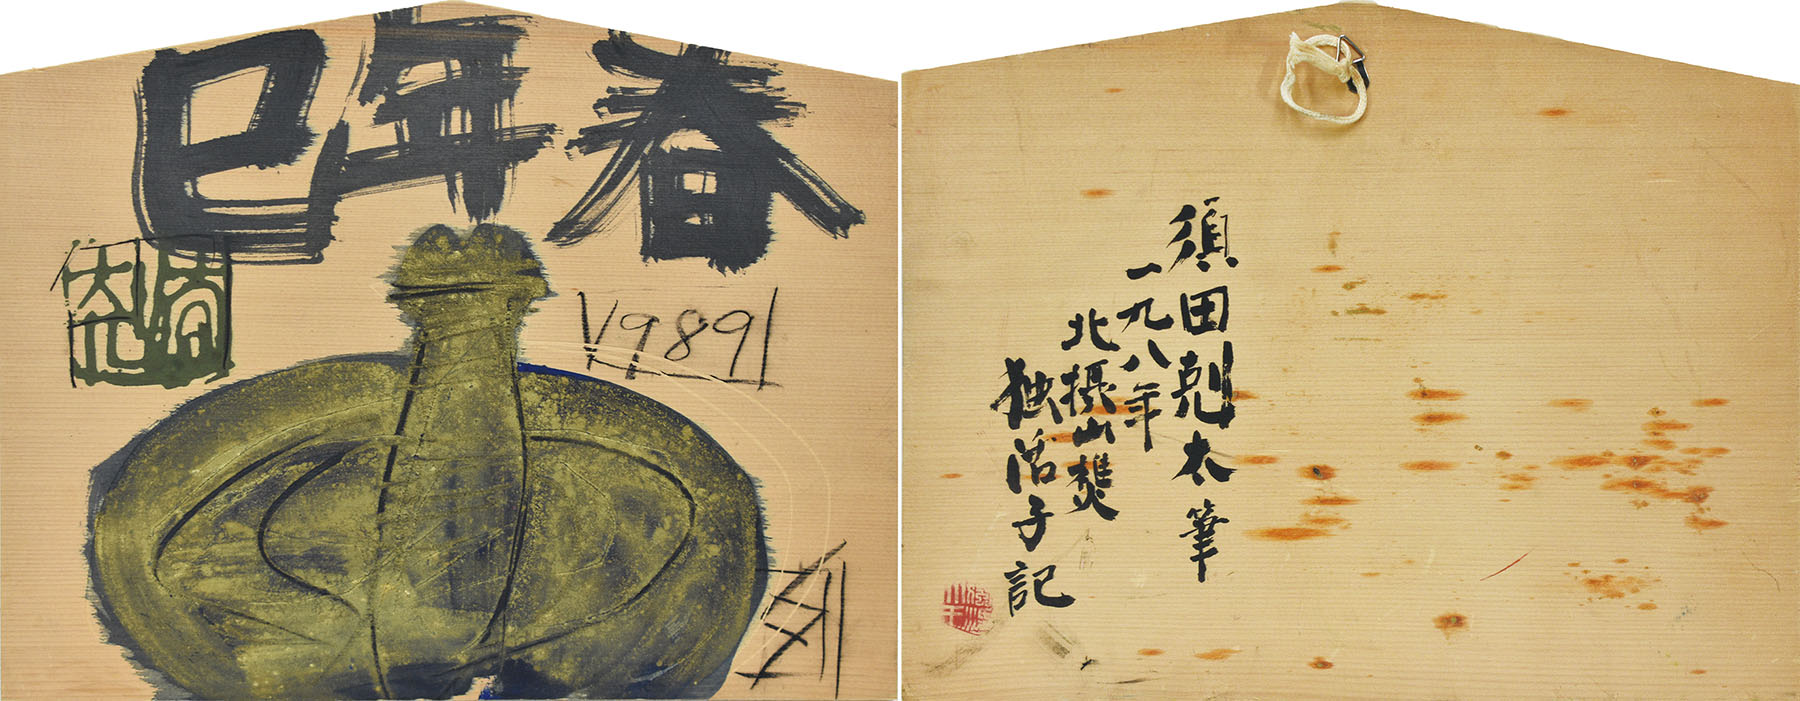 巳年春
1989
須田剋太筆
一九八年
北摂山樵
独活子記